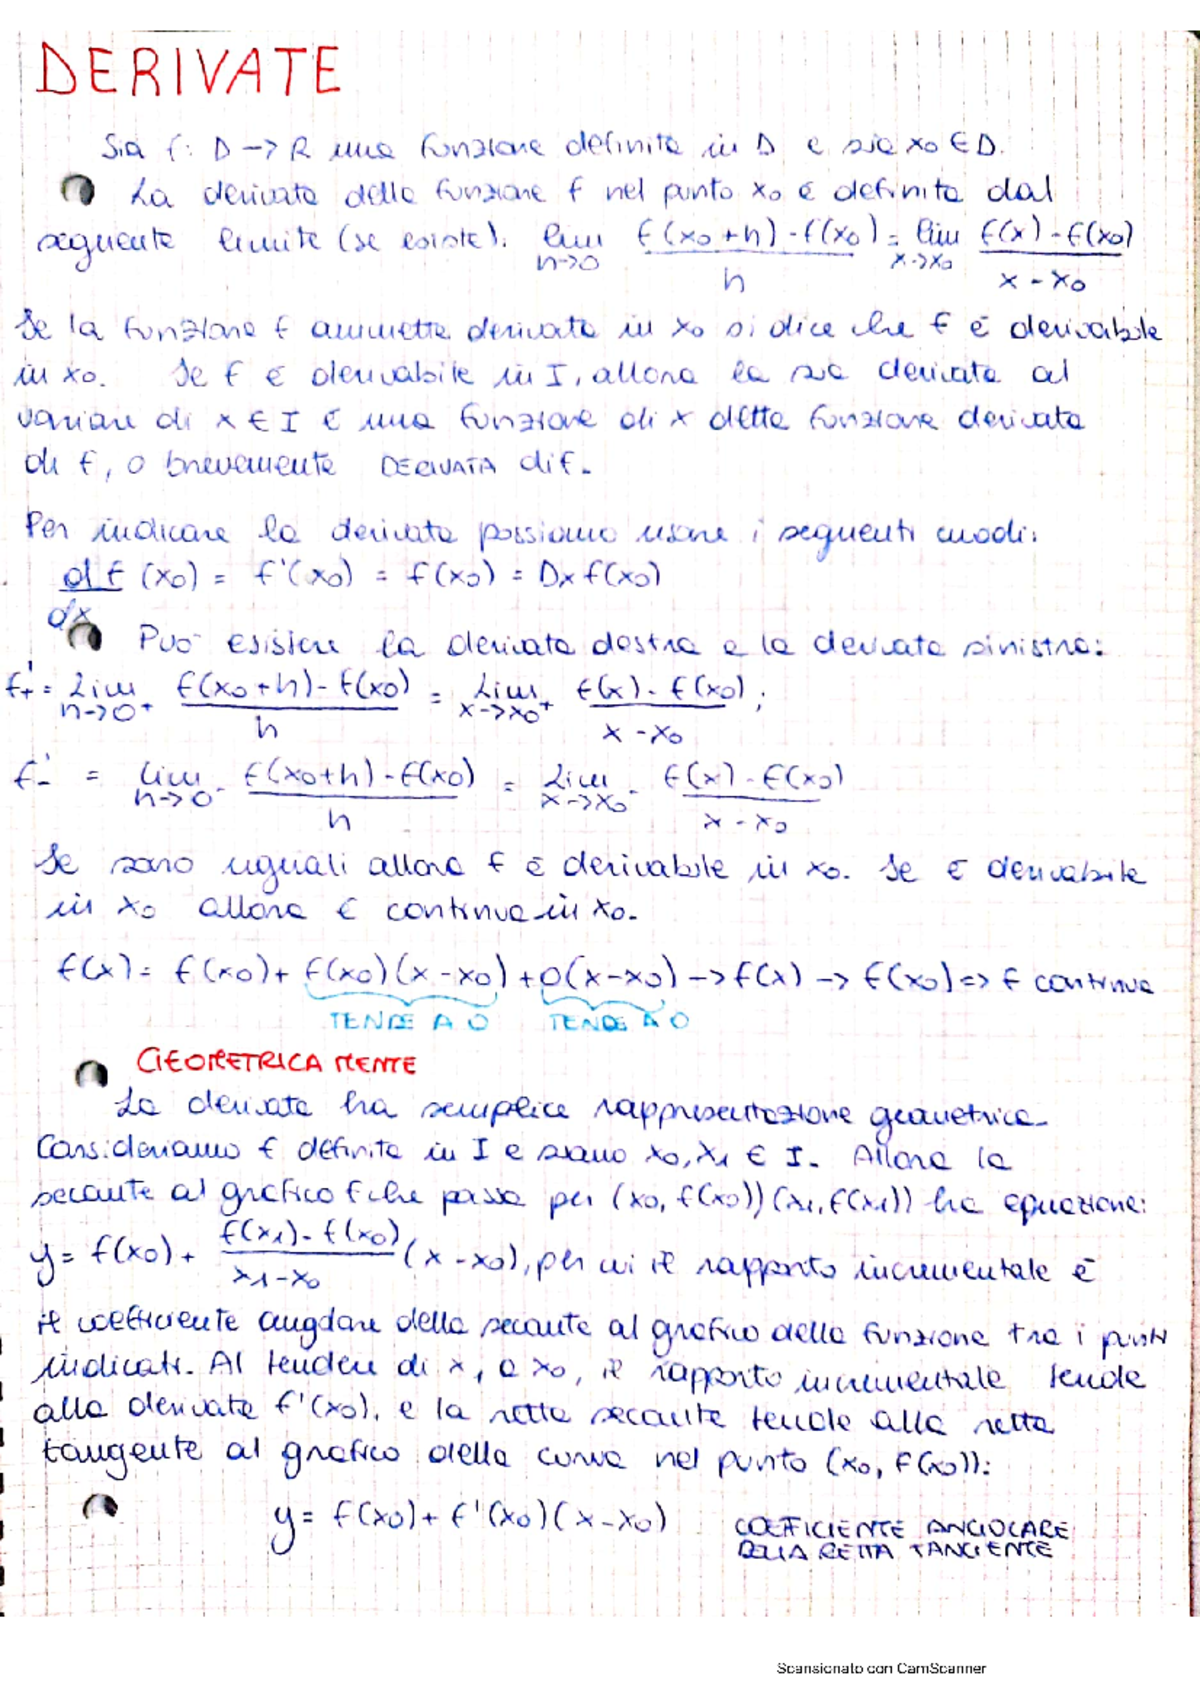 DERIVATE
Sia f: D -> R una funzione definita in D e sia x0 ∈ D.
La derivata della funzione f nel punto x0 è definita dal
seguente limite (se esiste): lim h->0 f(x0+h)-f(x0) / h = lim x->x0 f(x)-f(x0) / x-x0
Se la funzione f ammette derivata in x0 si dice che f è derivabile
in x0. Se f è derivabile in I, allora la sua derivata al
variare di x ∈ I è una funzione di x detta funzione derivata
di f, o brevemente DERIVATA di f.
Per indicare la derivata possiamo usare i seguenti modi:
df/dx (x0) = f'(x0) = f(x0) = Dx f(x0)
Può esistere la derivata destra e la derivata sinistra:
f'+ = lim h->0+ f(x0+h)-f(x0) / h = lim x->x0+ f(x)-f(x0) / x-x0 ;
f'- = lim h->0- f(x0+h)-f(x0) / h = lim x->x0- f(x)-f(x0) / x-x0
Se sono uguali allora f è derivabile in x0. Se è derivabile
in x0 allora è continua in x0.
f(x) = f(x0) + f(x0)(x-x0) + o(x-x0) -> f(x) -> f(x0) => f continua
TENDE A 0 TENDE A 0
GEOMETRICAMENTE
La derivata ha semplice rappresentazione geometrica.
Consideriamo f definita in I e siano x0, x1 ∈ I. Allora la
secante al grafico f che passa per (x0, f(x0)) (x1, f(x1)) ha equazione:
y = f(x0) + f(x1)-f(x0) / x1-x0 (x-x0), per cui il rapporto incrementale è
il coefficiente angolare della secante al grafico della funzione tra i punti
indicati. Al tendere di x1 a x0, il rapporto incrementale tende
alla derivata f'(x0), e la retta secante tende alla retta
tangente al grafico della curva nel punto (x0, f(x0)):
y = f(x0) + f'(x0)(x-x0)
COEFFICIENTE ANGOLARE
DELLA RETTA TANGENTE
Scansionato con CamScanner